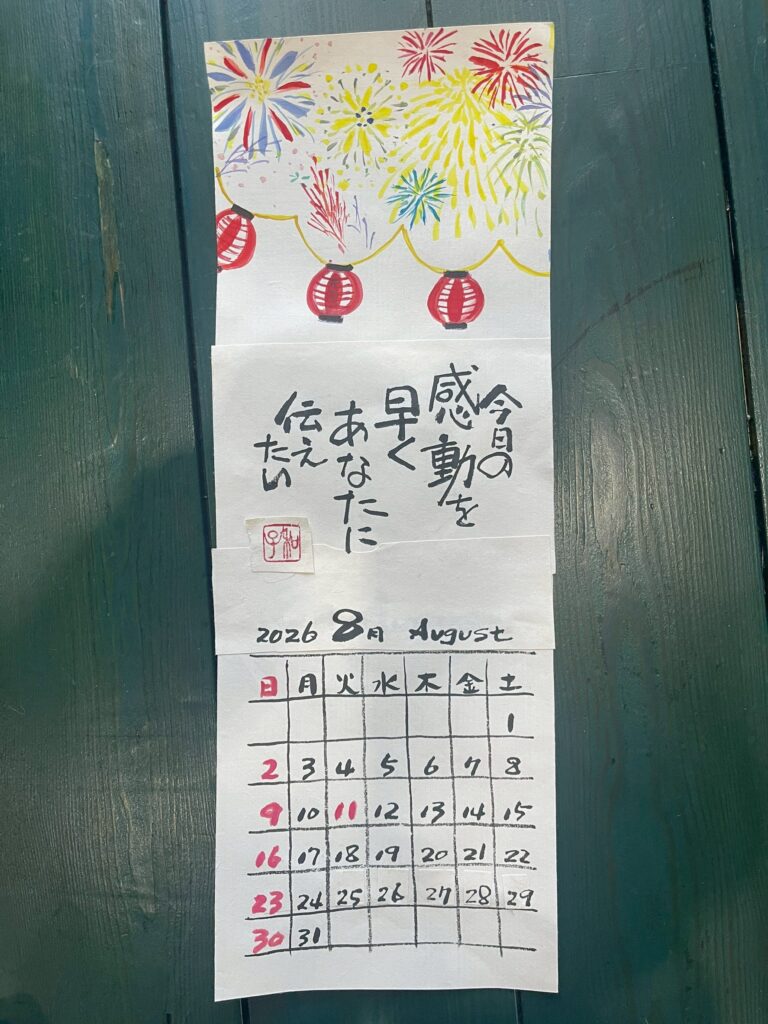 今日の
感動を
早く
あなたに
伝え
たい
和子
2026 8月 August
日 月 火 水 木 金 土
1
2 3 4 5 6 7 8
9 10 11 12 13 14 15
16 17 18 19 20 21 22
23 24 25 26 27 28 29
30 31